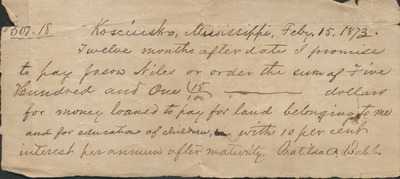 $501.18 Kosciusko, Mississippi, Feby. 15, 1873.
Twelve months after date I promise
to pay Jason Niles or order the sum of Five
Hundred and One 18/100 dollars
for money loaned to pay for land belonging to me
and for education of children, with 10 per cent
interest per annum after maturity. Matilda A. Webb